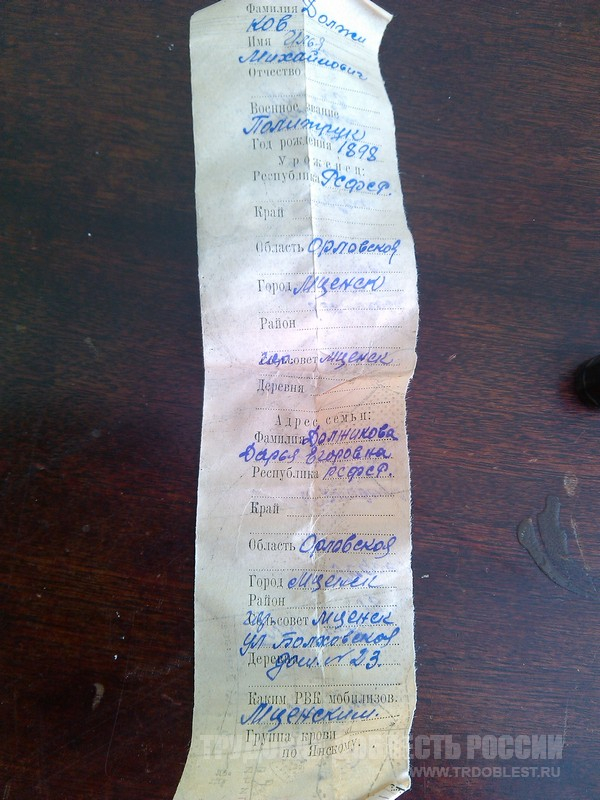 Фамилия Должи
ков
Имя Илья
Михайлович
Отчество
Военное звание
Политрук
Год рождения 1898
Уроженец:
Республика РСФСР.
Край
Область Орловской
Город Мценск
Район
гор. совет Мценск
Деревня
Адрес семьи:
Фамилия Должикова
Дарья Егоровна
Республика РСФСР.
Край
Область Орловской
Город Мценск
Район
гор. сельсовет Мценск
ул Болховская
Деревня дом. № 23.
Каким РВК мобилизов.
Мценским.
Группа крови
по Янскому.
ТРУДОВАЯ ДОБЛЕСТЬ РОССИИ
WWW.TRDOBLEST.RU